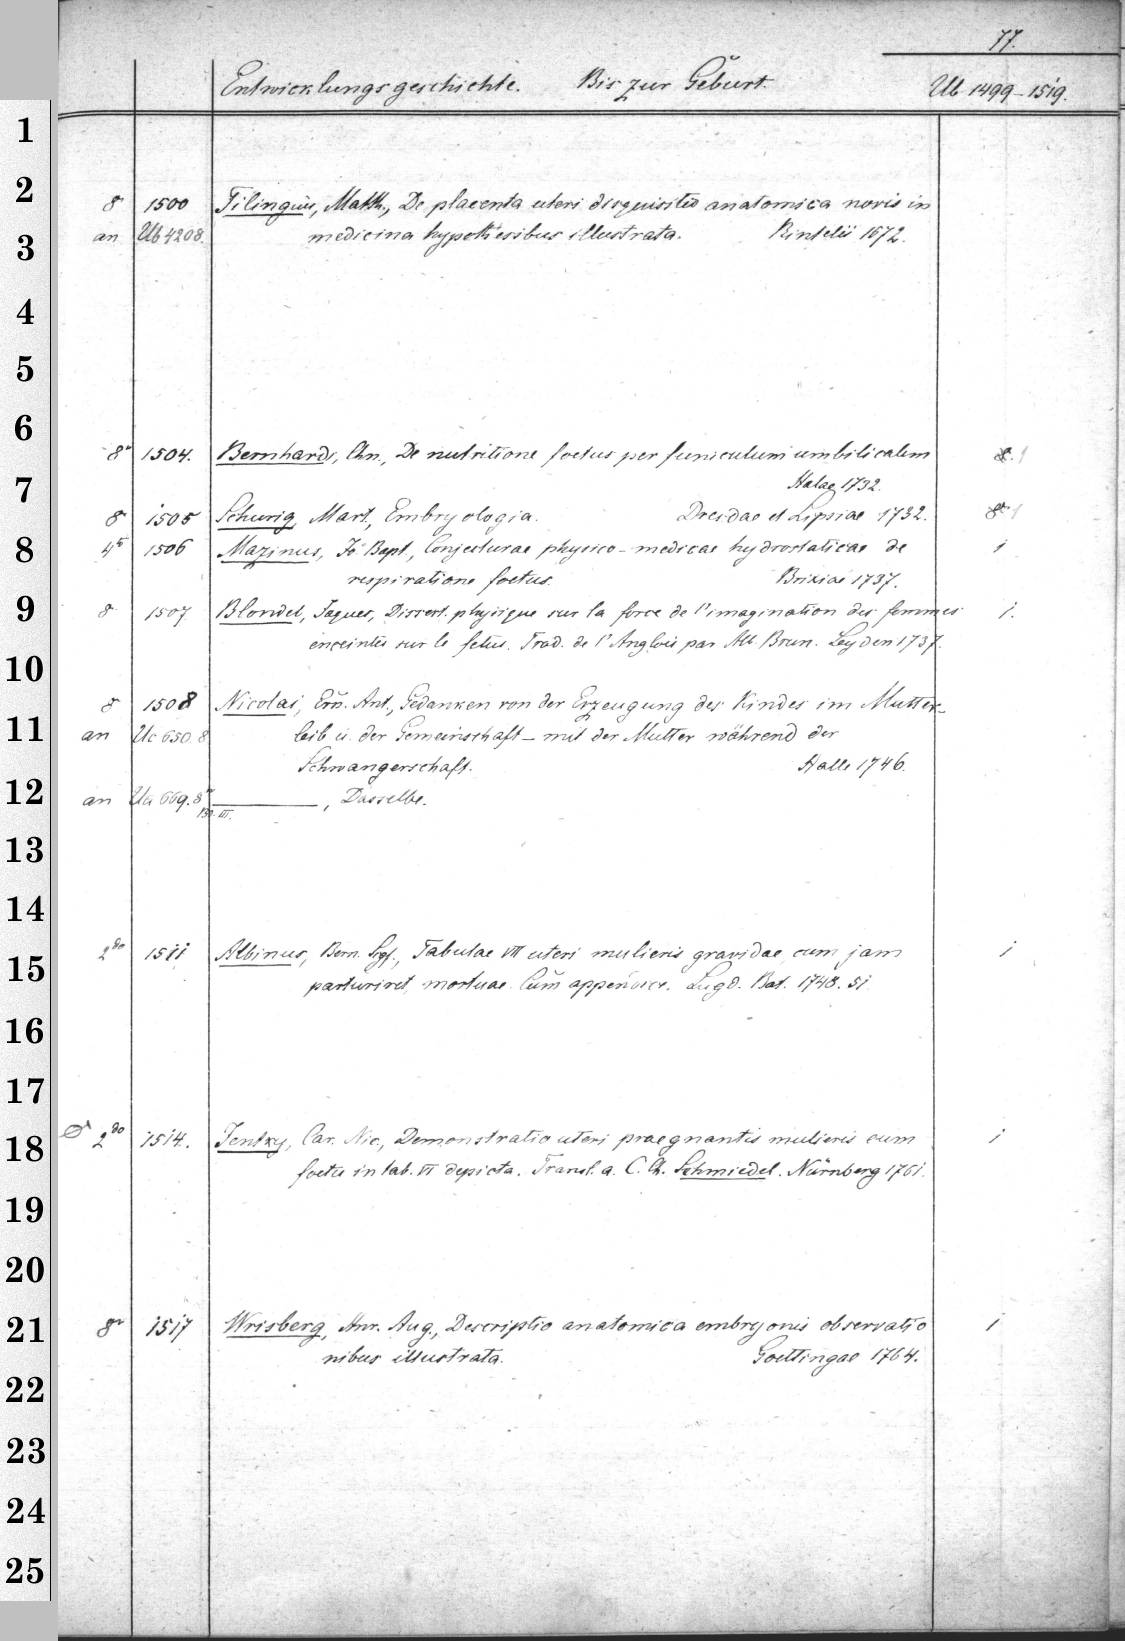 77.
Entwicklungsgeschichte. Bis zur Geburt. Ub 1499-1519.
1
2
8° 1500 Tilingius, Matth., De placenta uteri disquisitio anatomica novis in
3
an Ub 4208 medicina hypothesibus illustrata. Rintelii 1672.
4
5
6
8° 1504. Bernhardi, Chn., De nutritione foetus per funiculum umbilicalem 8. 1
7
Halae 1732.
8° 1505 Schurig, Mart., Embryologia. Dresdae et Lipsiae 1732. 8° 1
8
4to 1506 Mazinus, Jo. Bapt., Conjecturae physico-medicae hydrostaticae de 1
respiratione foetus. Brixiae 1737.
9
8 1507 Blondel, Jaques, Dissert. physique sur la force de l'imagination des femmes 1.
enceintes sur le fetus. Trad. de l'Anglois par Alb. Brun. Leyden 1737.
10
8 1508 Nicolai, Ern. Ant., Gedanken von der Erzeugung des Kindes im Mutter-
11
an Uc 650. 8 leib u. der Gemeinschaft - mit der Mutter während der
Schwangerschaft. Halle 1746.
12
an Ua 669. 8° Bd. III. ———, Dasselbe.
13
14
2do 1511 Albinus, Bern. Sgf., Tabulae VII uteri mulieris gravidae, cum jam 1
15
parturiret, mortuae. Cum appendice. Lugd. Bat. 1748. 51.
16
17
2do 1514. Jentzy, Car. Nic., Demonstratio uteri praegnantis mulieris cum 1
18
foetu in tab. VI depicta. Transl. a. C. Ch. Schmiedel. Nürnberg 1761.
19
20
21
8° 1517 Wrisberg, Hnr. Aug., Descriptio anatomica embryonis observatio 1
nibus illustrata. Goettingae 1764.
22
23
24
25